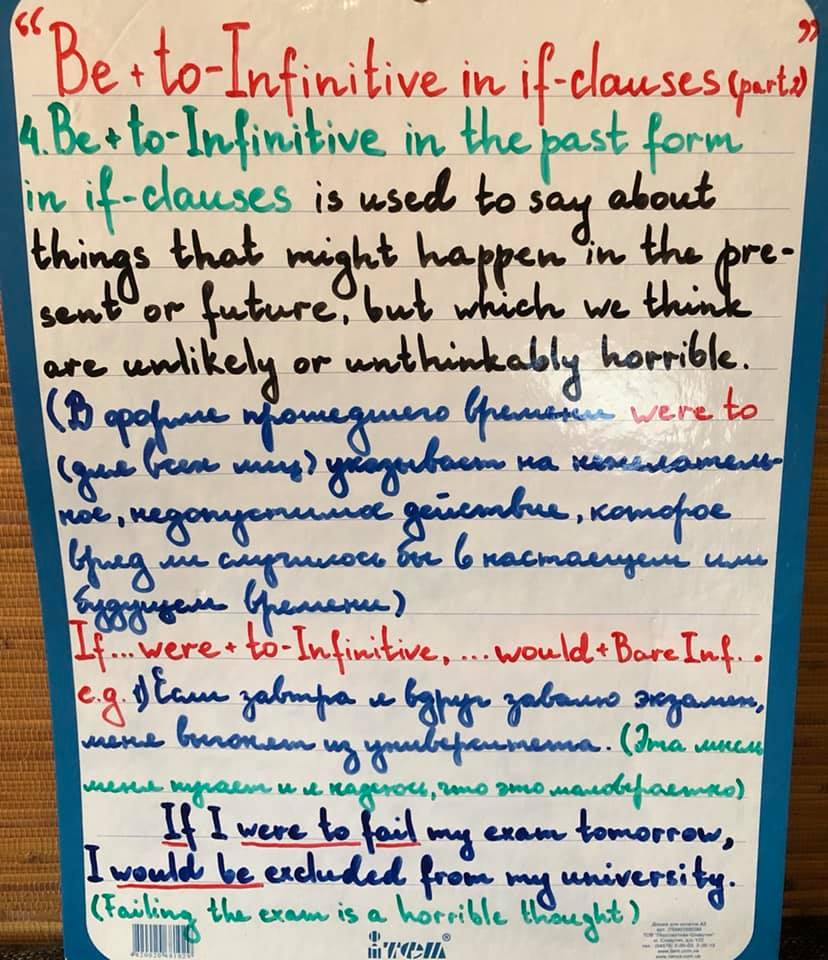 “Be + to-Infinitive in if-clauses (part 2)”
4. Be + to-Infinitive in the past form
in if-clauses is used to say about
things that might happen in the pre-
sent or future, but which we think
are unlikely or unthinkably horrible.
(В форме прошедшего времени were to
(для всех лиц) указывает на нежелатель-
ное, недопустимое действие, которое
вряд ли случилось бы в настоящем или
будущем времени)
If...were + to-Infinitive, ...would + Bare Inf...
e.g. 1) Если завтра я вдруг завалю экзамен,
меня выгонят из университета. (Эта мысль
меня пугает и я надеюсь, что это маловероятно)
If I were to fail my exam tomorrow,
I would be excluded from my university.
(Failing the exam is a horrible thought)
ітем®